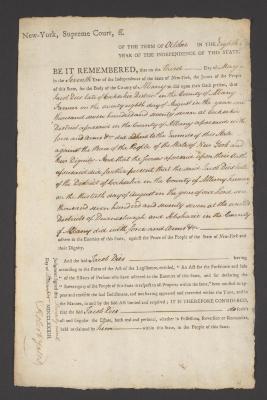 New-York, Supreme Court, ss.
OF THE TERM OF October IN THE Eighth
YEAR OF THE INDEPENDENCE OF THIS STATE.
BE IT REMEMBERED, That on the Third Day of May
in the Seventh Year of the Independence of the State of New-York, the Jurors of the People
of this State, for the Body of the County of Albany on their Oath present, that
Jacob Dies late of Cocksakie District in the County of Albany
Farmer on the twenty eighth day of August in the year one
thousand seven hundred and seventy seven at Cocksakie
District aforesaid in the County of Albany aforesaid with
force and Arms &c did adhere to the Enemies of this State
against the Form of the People of the State of New York and
their Dignity. And the Jurors aforesaid upon their Oath
aforesaid do further present that the said Jacob Dies late
of the District of Cocksakie in the County of Albany Farmer
on the thirtieth day of August in the year of our Lord one
thousand seven hundred and seventy seven at the united
Districts of Duanesburgh and Schoharie in the County
of Albany did with force and Arms &c
adhere to the Enemies of this State, against the Peace of the People of the State of New-York and
their Dignity.
And the said Jacob Dies having
according to the Form of the Act of the Legislature, entitled, "An Act for the Forfeiture and Sale
"of the Estates of Persons who have adhered to the Enemies of this State, and for declaring the
"Sovereignty of the People of this State in respect to all Property within the same," been notified to ap-
pear and traverse the said Indictment, and not having appeared and traversed within the Time, and in
the Manner, in and by the said Act limited and required; IT IS THEREFORE CONSIDERED,
that the said Jacob Dies do forfeit
all and singular the Estate, both real and personal, whether in Possession, Reversion or Remainder,
held or claimed by him within this State, to the People of this State.
Judgment signed this
Day of MDCCLXXXIII.